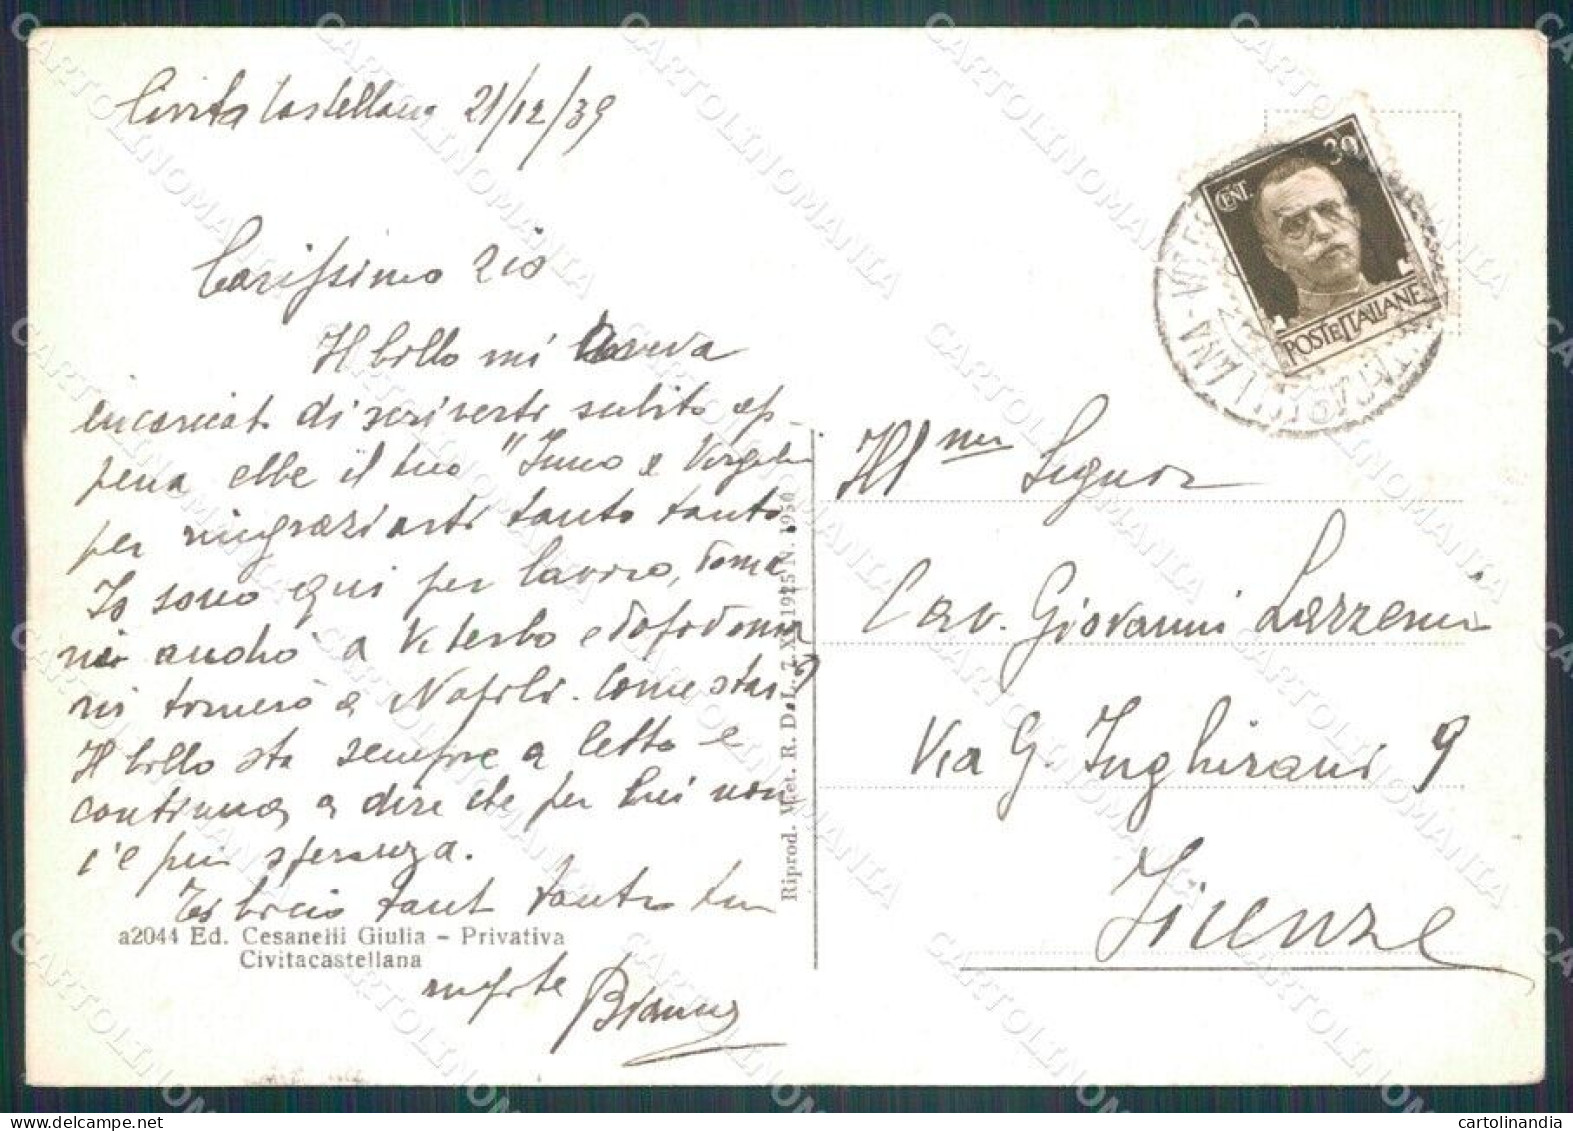 Civita Castellana 21/12/39
Carissimo zio
Il  mi aveva
incaricato di scriverti subito ap-
pena ebbe il tuo "
per ringraziarti tanto tanto.
Io sono qui per lavoro, doma
ni andrò a Viterbo e dopodoma
ni tornerò a Napoli. Come stai?
Il  sta sempre a letto e
continua a dire che per lui non
c'è più speranza.
Ti bacio tanto tanto tuo
nipote
a2044 Ed. Cesanelli Giulia - Privativa
Civitacastellana
Riprod. Viet. R. D. L. 7. XI. 1925 N. 1950
CENT. 30
POSTE ITALIANE
Ill mo Signor
Cav. Giovanni Lazzerini
Via G. Inghirami 9
Firenze
CARTOLINOMANIA
cartolinandia